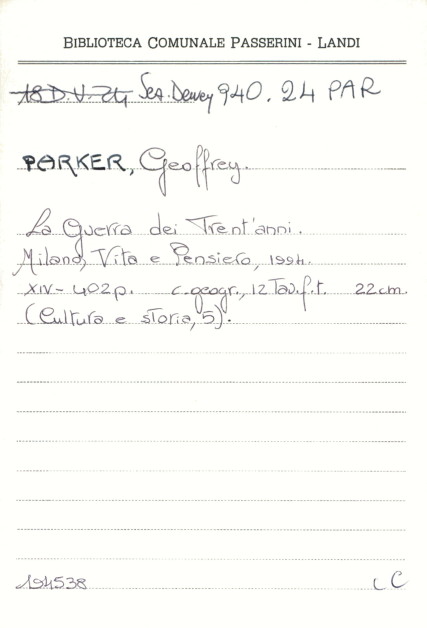 BIBLIOTECA COMUNALE PASSERINI - LANDI
18 D.V. 24 Sez. Dewey 940.24 PAR
PARKER, Geoffrey.
La Guerra dei Trent'anni.
Milano, Vita e Pensiero, 1994.
XIV - 402 p. c.geogr., 12 Tav.f.t. 22 cm.
(Cultura e storia, 5).
194538 C